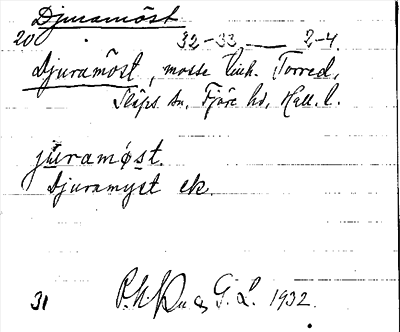 Djuramöst
20 32-33 — 2-4.
Djuramöst, mosse Torred,
Släps sn, Fjäre hd, Hall. l.
juramøst.
Djuramyst ek.
31 G. L. 1932.